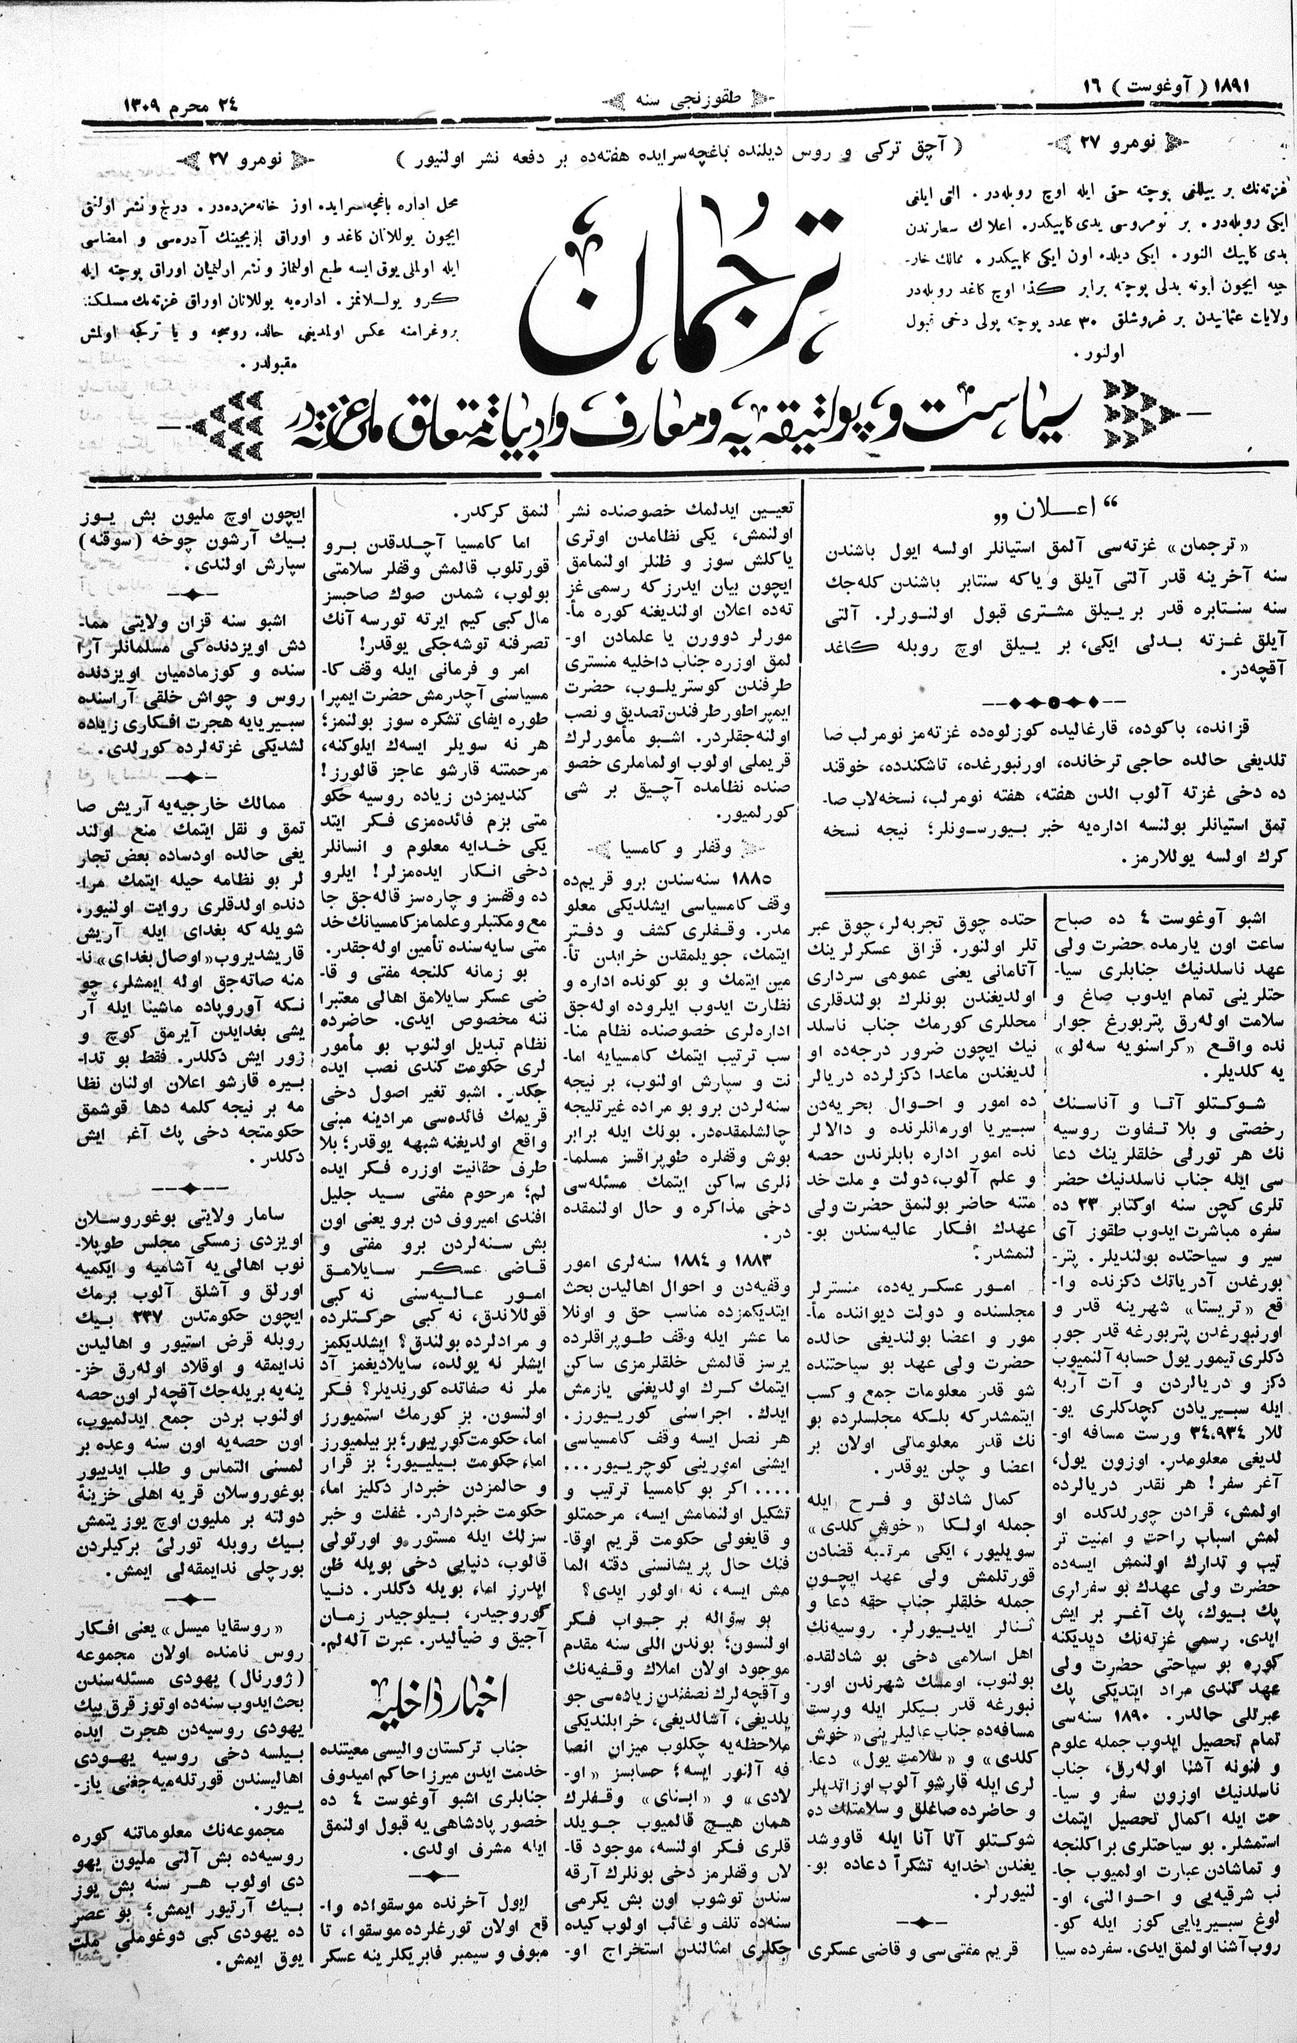 ١٨٩١ ( آوغوست ) ١٦
طقوزنجی سنه
٢٤ محرم ١٣٠٩
نومرو ٢٧
( آچق ترکی و روس دیلنده باغچه‌سرایده هفته‌ده بر دفعه نشر اولنیور )
نومرو ٢٧
غزته‌نك بر ییللغی پوچته حقی ایله اوچ روبله‌در . التی ایلغی
ایکی روبله‌در . بر نومروسی یدی کاپیکدر. اعلانك سطرندن
یدی کاپیك النور. ایکی دیلده اون ایکی کاپیکدر. ممالك خار-
جیه ایچون ابونه بدلی پوچته برابر اوچ کاغد روبله‌در
ولایات عثمانیدن بر غروشلق ٣٠ عدد پوچته پولی دخی قبول
اولنور .
ترجمان
محل اداره باغچه سرایده اوز خانه‌مزده‌در. درج و نشر اولنمق
ایچون یوللانان کاغد و اوراق یازیجینك آدره‌سی و امضاسی
ایله اولمالی یوق ایسه طبع اولنماز و نشر اولنمیان اوراق پوچته ایله
کرو یوللانمز. اداره‌یه یوللانان اوراق غزته‌نك مسلکنه
پروغرامنه عکس اولمدیغی حالده روسجه و یا ترکجه اولمش
مقبولدر .
سیاست و پولتیقه‌یه و معارف و ادبیاته متعلق ملی غزته‌در
“ اعــلان ”
«ترجمان» غزته‌سی آلمق استیانلر اولسه ایول باشندن
سنه آخرینه قدر آلتی آیلق و یاکه سنتابر باشندن کله‌جك
سنه سنتابره قدر بر ییلق مشتری قبول اولنورلر. آلتی
آیلق غزته بدلی ایکی، بر ییلق اوچ روبله کاغد
آقچه‌در .
قزانده، باکوده، قارغالیده کوزلوه‌ده غزته‌مز نومرلب صا
تلدیغی حالده حاجی ترخانده، اورنبورغده، تاشکندده، خوقند
ده دخی غزته آلوب الدن هفته، هفته نومرلب، نسخه‌لاب صا-
تمق استیانلر بولنسه اداره‌یه خبر بیورسونلر؛ نیجه نسخه
کرك اولسه یوللارمز.
اشبو آوغوست ٤ ده صباح
ساعت اون یارمده حضرت ولی
عهد ناسلدنیك جنابلری سیا-
حتلرینی تمام ایدوب صاغ و
سلامت اوله‌رق پتربورغ جوار
نده واقع «کراسنویه سه‌لو»
یه کلدیلر.
شوکتلو آتا و آناسنك
رخصتی و بلا تفاوت روسیه
نك هر تورلی خلقلرینك دعا
سی ایله جناب ناسلدنیك حضر
تلری کچن سنه اوکتابر ٢٣ ده
سفره مباشرت ایدوب طقوز آی
سیر و سیاحتده بولندیلر. پتر-
بورغدن آدریاتك دکزنده وا-
قع «تریستا» شهرینه قدر و
اورنبورغدن پتربورغه قدر جور
دکلری تیمور یول حسابه آلنمیوب
دکز و دریالردن و آت آربه
ایله سبیریادن کچدکلری یو-
للار ٣٤،٩٣٤ ورست مسافه او-
لدیغی معلومدر. اوزون یول،
آغر سفر! هر نقدر دریالرده
اولمش، قرادن چورلدکده او
لمش اسباب راحت و امنیت تر
تیب و تدارك اولنمش ایسه‌ده
حضرت ولی عهدك بو سفرلری
پك بیوك، پك آغر بر ایش
ایدی. رسمی غزته‌نك دیدیکنه
کوره بو سیاحتی حضرت ولی
عهد کندی مراد ایتدیکی پك
عبرتلی حالدر. ١٨٩٠ سنه‌سی
تمام تحصیل ایدوب جمله علوم
و فنونه آشنا اوله‌رق، جناب
ناسلدنیك اوزون سفر و سیا-
حت ایله اکمال تحصیل ایتمك
استمشلر. بو سیاحتلری براکلنجه
و تماشادن عبارت اولمیوب جا-
نب شرقیه‌یی و احوالنی، او-
لوغ سبیریایی کوز ایله کو-
روب آشنا اولمق ایدی. سفرده سیا
حتده چوق تجربه‌لر، چوق عبر
تلر اولنور. قزاق عسکرلرینك
آتامانی یعنی عمومی سرداری
اولدیغندن بونلرك بولندقلری
محللری کورمك جناب ناسلد
نیك ایچون ضرور درجه‌ده او
لدیغندن ماعدا دکزلرده دریالر
ده امور و احوال بحریه‌دن
سبیریا اورمانلرنده و دالالر
نده امور اداره بابلرندن حصه
و علم آلوب، دولت و ملت خد
متنه حاضر بولنمق حضرت ولی
عهدك افکار عالیه‌سندن بو-
لنمشدر.
امور عسکریه‌ده، منسترلر
مجلسنده و دولت دیوانده مأ-
مور و اعضا بولندیغی حالده
حضرت ولی عهد بو سیاحتنده
شو قدر معلومات جمع و کسب
ایتمشدرکه بلکه مجلسلرده بو
نك قدر معلوماتی اولان بر
اعضا و چلن یوقدر.
کمال شادلق و فرح ایله
جمله اولکا «خوش کلدی»
سویلیور، ایکی مرتبه قضادن
قورتلمش ولی عهد ایچون
جمله خلقلر جناب حقه دعا و
ثنالر ایدیورلر. روسیه‌نك
اهل اسلامی دخی بو شادلقده
بولنوب، اومسك شهرندن اور-
نبورغه قدر بیکلر ایله ورست
مسافه‌ده جناب عالیلرینی «خوش
کلدی» و «سلامت یول» دعا-
لری ایله قارشو آلوب اوزاتدیلر
و حاضرده صاغلق و سلامتلك ده
شوکتلو آتا آنا ایله قاووشد
یغندن خدایه تشکراً دعاده بو-
لنیورلر.
قریم مفتی‌سی و قاضی عسکری
تعیین ایدلمك خصوصنده نشر
اولنمش، یکی نظامدن اوتری
یاکلش سوز و ظنلر اولنمامق
ایچون بیان ایدرزکه رسمی غز
ته‌ده اعلان اولندیغنه کوره مأ-
مورلر دوورن یا علمادن او-
لمق اوزره جناب داخلیه منستری
طرفندن کوستریلوب، حضرت
ایمپراطور طرفندن تصدیق و نصب
اولنه‌جقلردر. اشبو مأمورلرك
قریملی اولوب اولماملری خصو
صنده نظامده آچیق بر شی
کورلمیور.
وقفلر و کامسیا
١٨٨٥ سنه‌سندن برو قریمده
وقف کامسیاسی ایشلدیکی معلو
مدر. وقفلری کشف و دفتر
ایتمك، جویلمقدن خرابدن تأ-
مین ایتمك و بو کونده اداره و
نظارت ایدوب ایلروده اوله‌جق
اداره‌لری خصوصنده نظام منا-
سب ترتیب ایتمك کامسیایه اما-
نت و سپارش اولنوب، بر نیجه
سنه‌لردن برو بو مراده غیرتلیجه
چالشلمقده‌در. بونك ایله برابر
بوش وقفلره طوپراقسز مسلما-
نلری ساکن ایتمك مسئله‌سی
دخی مذاکره و حال اولنمقده
در.
١٨٨٣ و ١٨٨٤ سنه‌لری امور
وقفیه‌دن و احوال اهالیدن بحث
ایتدیکمزده مناسب حق و اونلا
ما عشر ایله وقف طوپراقلرده
یرسز قالمش خلقلرمزی ساکن
ایتمك کرك اولدیغنی یازمش
ایدك. اجراسنی کوریورز.
هر نصل ایسه وقف کامسیاسی
ایشنی امورینی کوچریور...
.... اکر بو کامسیا ترتیب و
تشکیل اولنمامش ایسه، مرحمتلو
و قایغولی حکومت قریم اوقا-
فنك حال پریشانسنی دقته الما
مش ایسه، نه اولور ایدی؟
بو سؤاله بر جواب فکر
اولنسون؛ بوندن اللی سنه مقدم
موجود اولان املاك وقفیه‌نك
و آقچه‌لرك نصفندن زیاده‌سی جو
یلدیغی، آشالدیغی، خرابلندیکی
ملاحظه‌یه چکلوب میزان انصا
فه آلنور ایسه؛ حسابسز «او-
لادی» و «ابنای» وقفلرك
همان هیچ قالمیوب جویلد
قلری فکر اولنسه، موجود قا-
لان وقفلرمز دخی بونلرك آرقه
سندن توشوب اون بش یکرمی
سنه‌ده تلف و غائب اولوب کیده
جکلری امثالندن استخراج او-
لنمق کرکدر.
اما کامسیا آچلدقدن برو
قورتلوب قالمش وقفلر سلامتی
بولوب، شمدن صوك صاحبسز
مال کبی کیم ایرته تورسه آنك
تصرفنه توشه‌جکی یوقدر!
امر و فرمانی ایله وقف کا-
مسیاسنی آچدرمش حضرت ایمپرا
طوره ایفای تشکره سوز بولنمز؛
هر نه سویلر ایسه‌ك ایلوکنه،
مرحمتنه قارشو عاجز قالورز!
کندیمزدن زیاده روسیه حکو
متی بزم فائده‌مزی فکر ایتد
یکی خدایه معلوم و انسانلر
دخی انکار ایده‌مزلر! ایلرو
ده وقفسز و چاره‌سز قاله‌جق جا
مع و مکتبلر و علمامز کامسیانك خد
متی سایه‌سنده تأمین اوله‌جقدر.
بو زمانه کلنجه مفتی و قا-
ضی عسکر سایلامق اهالی معتبرا
ننه مخصوص ایدی. حاضرده
نظام تبدیل اولنوب بو مأمور
لری حکومت کندی نصب ایده
جکدر. اشبو تغیر اصول دخی
قریمك فائده‌سی مرادینه مبنی
واقع اولدیغنه شبهه یوقدر؛ بلا
طرف حقانیت اوزره فکر ایده
لم؛ مرحوم مفتی سید جلیل
افندی امیروف دن برو یعنی اون
بش سنه‌لردن برو مفتی و
قاضی عسکر سایلامق
امور عالیه‌سنی نه کبی
قوللاندق، نه کبی حرکتلرده
و مرادلرده بولندق؟ ایشلدیکمز
ایشلر نه یولده، سایلادیغمز آد
ملر نه صفاتده کورندیلر؟ فکر
اولنسون. بز کورمك استمیورز
اما، حکومت کورییور؛ بز بیلمیورز
اما، حکومت بیلییور؛ بز قرار
و حالمزدن خبردار دکلیز اما،
حکومت خبرداردر. غفلت و خبر
سزلك ایله مستور و اورتولی
قالوب، دنیایی دخی بویله ظن
ایدرز اما، بویله دکلدر. دنیا
کوروجیدر، بیلوجیدر زمان
آچیق و ضیألیدر. عبرت آله‌لم.
اخبار داخلیه
جناب ترکستان والیسی معیتنده
خدمت ایدن میرزا حاکم امیدوف
جنابلری اشبو آوغوست ٤ ده
حضور پادشاهی‌یه قبول اولنمق
ایله مشرف اولدی.
ایول آخرنده موسقواده وا-
قع اولان تورغلرده موسقوا، تا
مبوف و سیمبر فابریکلرینه عسکر
ایچون اوچ ملیون بش یوز
بیك آرشون چوخه (سوقنه)
سپارش اولندی.
اشبو سنه قزان ولایتی مما-
دش اویزدنده‌کی مسلمانلر آرا
سنده و کوزمادمیان اویزدنده
روس و چواش خلقی آراسنده
سبیریایه هجرت افکاری زیاده
لشدیکی غزته‌لرده کورلدی.
ممالك خارجیه‌یه آریش صا
تمق و نقل ایتمك منع اولند
یغی حالده اودساده بعض تجار
لر بو نظامه حیله ایتمك مرا-
دنده اولدقلری روایت اولنیور.
شویله‌که بغدای ایله آریش
قاریشدیروب «اوصال بغدای» نا-
منه صاته‌جق اوله ایمشلر، چو
نکه آوروپاده ماشینا ایله آر
یشی بغدایدن آیرمق کوچ و
زور ایش دکلدر. فقط بو تدا-
بیره قارشو اعلان اولنان نظا
مه بر نیجه کلمه دها قوشمق
حکومتجه دخی پك آغر ایش
دکلدر.
سامار ولایتی بوغوروسلان
اویزدی زمسکی مجلس طوپلا-
نوب اهالی‌یه آشامیه و ایکمیه
اورلق و آشلق آلوب برمك
ایچون حکومتدن ٢٣٧ بیك
روبله قرض استیور و اهالیدن
ندایمقه و اوقلاد اوله‌رق خز-
ینه‌یه بریله‌جك آقچه‌لر اون حصه
اولنوب بردن جمع ایدلمیوب،
اون حصه‌یه اون سنه وعده بر
لمسنی التماس و طلب ایدییور
بوغوروسلان قریه اهلی خزینۀ
دولته بر ملیون اوچ یوز یتمش
بیك روبله تورلی برکیلردن
بورچلی ندایمقه‌لی ایمش.
«روسقایا میسل» یعنی افکار
روس نامنده اولان مجموعه
(ژورنال) یهودی مسئله‌سندن
بحث ایدوب سنه‌ده اوتوز قرق بیك
یهودی روسیه‌دن هجرت ایده
بیلسه دخی روسیه یهودی
اهالیسندن قورتله‌میه‌جغنی یاز-
ییور.
مجموعه‌نك معلوماتنه کوره
روسیه‌ده بش آلتی ملیون یهو
دی اولوب هر سنه بش یوز
بیك آرتیور ایمش؛ بو عصر
ده یهودی کبی دوغوملی ملت
یوق ایمش.